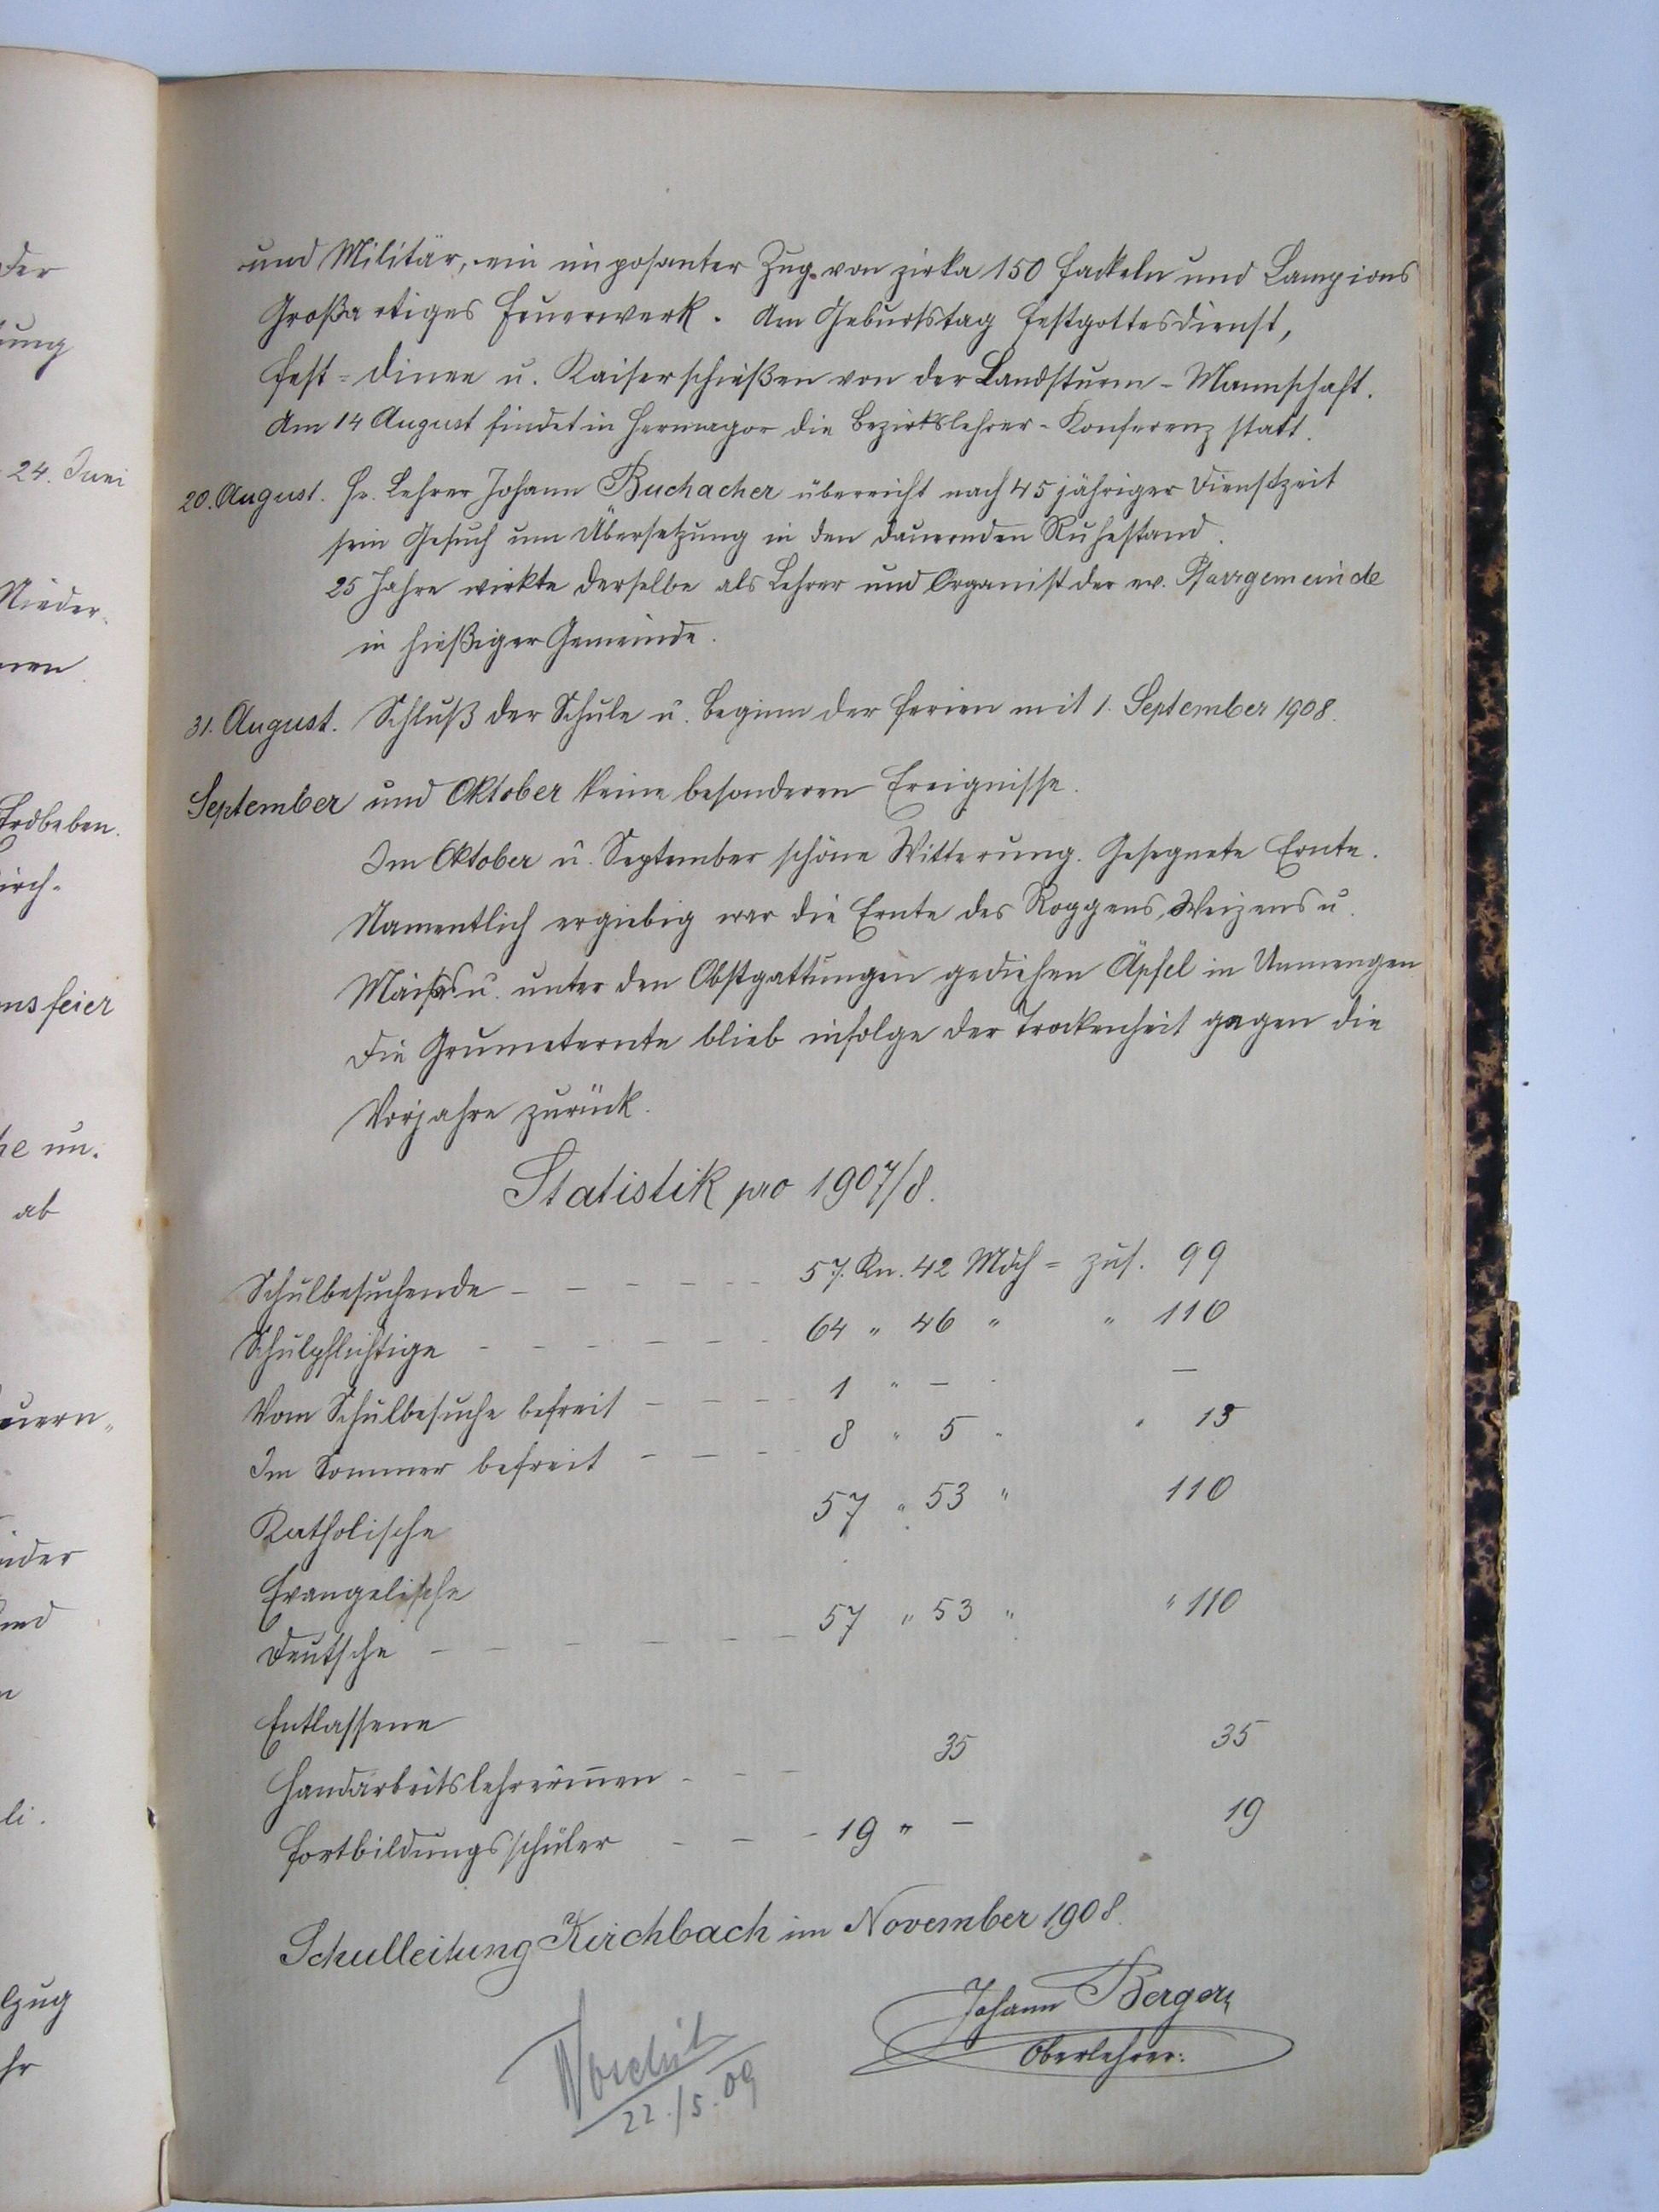 und Militär, ein imposanter Zug von zirka 150 Fackeln und Lampions
Großartiges Feuerwerk. Am Geburtstag Festgottesdienst,
Fest=Dinee u. Kaiserschießen von der Landsturm-Mannschaft.
Am 14 August findet in Hermagor die Bezirkslehrer-Konferenz statt.
20. August. Hr. Lehrer Johann Buchacher überreicht nach 45 jähriger Dienstzeit
sein Gesuch um Übersetzung in den dauernden Ruhestand.
25 Jahre wirkte derselbe als Lehrer und Organist der ev. Pfarrgemeinde
in hießiger Gemeinde.
31. August. Schluß der Schule u. Beginn der Ferien mit 1. September 1908.
September und Oktober keine besonderen Ereignisse.
Im Oktober u. September schöne Witterung. Gesegnete Ernte.
Namentlich ergiebig war die Ernte des Roggens, Weizens u.
Maises u. unter den Obstgattungen gediehen Äpfel in Unmengen
Die Grumeternte blieb infolge der Trockenheit gegen die
Vorjahre zurück.
Statistik pro 1907/8.
Schulbesuchende - - - - - - 57. Kn. 42 Mdch = zus. 99
Schulpflichtige - - - - - - 64 " 46 " " 110
Vom Schulbesuche befreit - - - - 1 " - . -
Im Sommer befreit - - - - 8 " 5 " " 13
Katholische 57 " 53 " 110
Evangelische
Deutsche - - - - - - 57 " 53 " " 110
Entlassene
Handarbeitslehrerinnen - - - 35 35
Fortbildungsschüler - - - 19 " - 19
Schulleitung Kirchbach im November 1908.
Johann Berger
Oberlehrer:
22./5. 09
der
ung
24. Juni
Nieder-
nen
Erdbeben.
irch-
nsfeier
he un.
ab
uern
ider
und
n
li.
lzug
hr